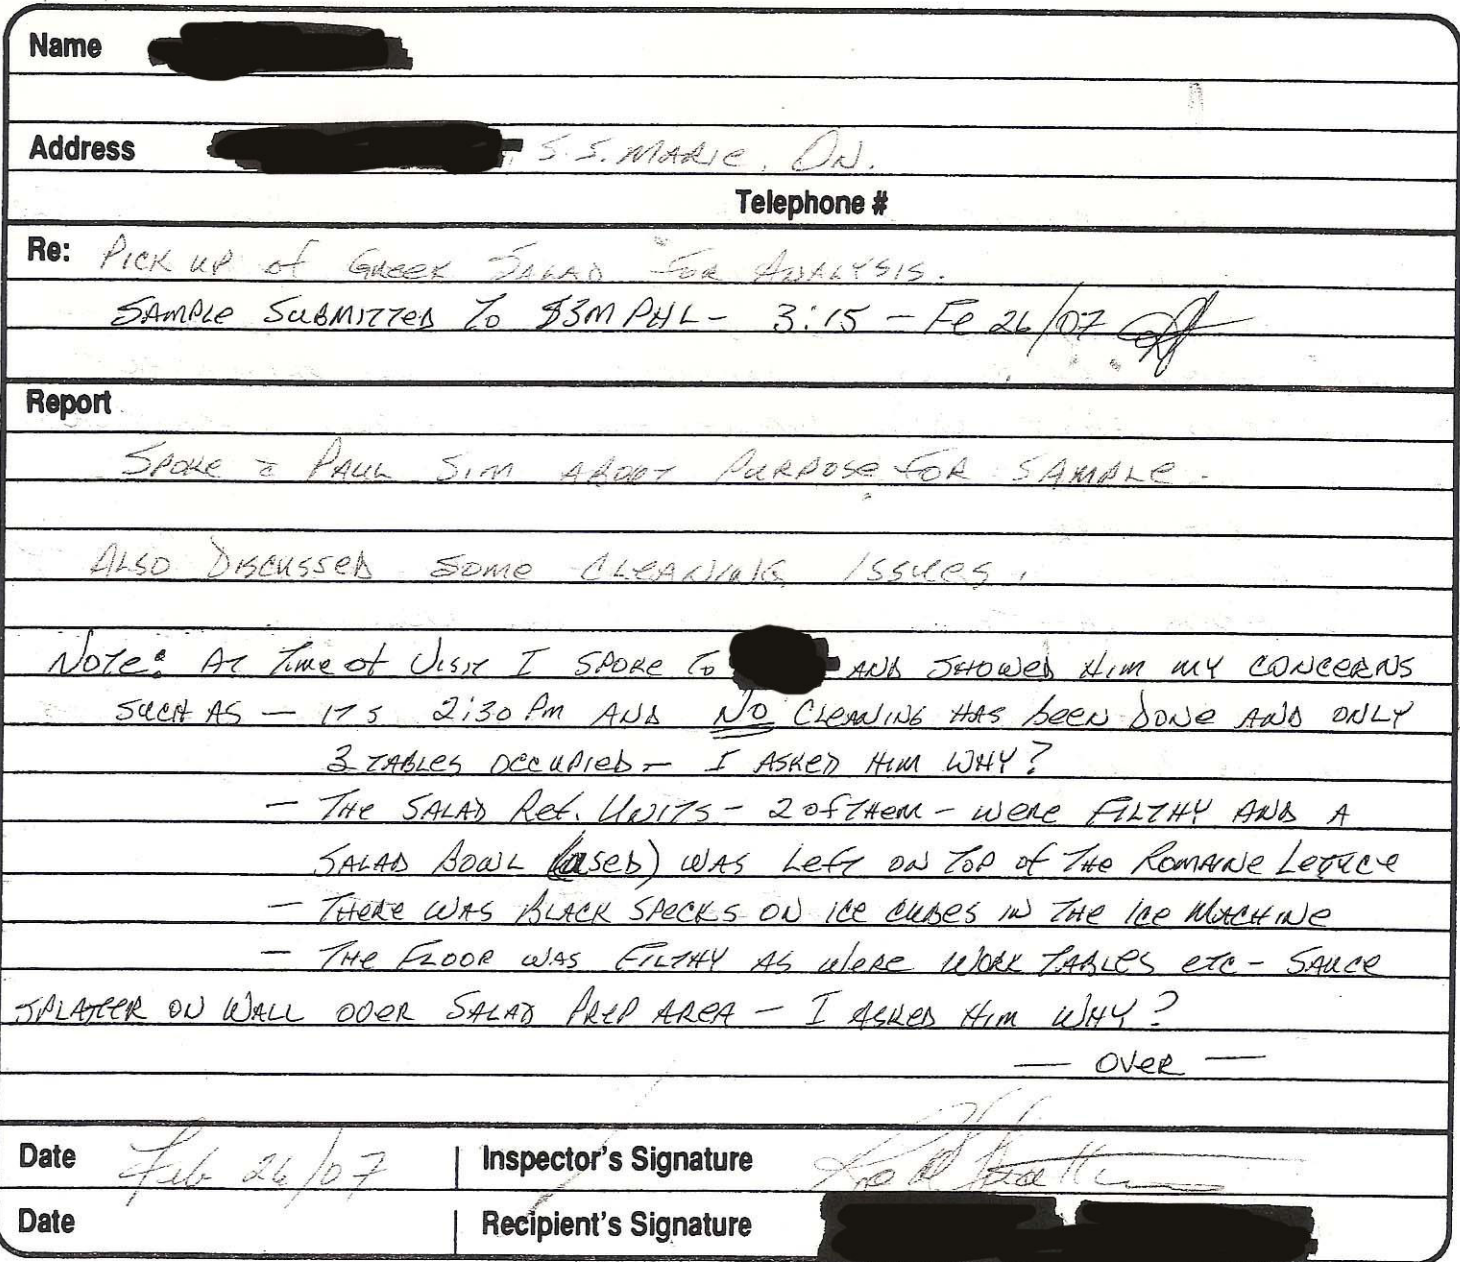 Name
Address S.S. MARIE, ON.
Telephone #
Re: PICK UP of GREEK SALAD FOR ANALYSIS.
SAMPLE SUBMITTED TO SSM PHL - 3:15 - Fe 26/07
Report
SPOKE PAUL SIM ABOUT PURPOSE FOR SAMPLE.
ALSO DISCUSSED SOME CLEANING ISSUES.
NOTE: AT TIME OF VISIT I SPOKE TO AND SHOWED HIM MY CONCERNS
SUCH AS - ITS 2:30 PM AND NO CLEANING HAS BEEN DONE AND ONLY
3 TABLES OCCUPIED - I ASKED HIM WHY?
- THE SALAD REF. UNITS - 2 OF THEM - WERE FILTHY AND A
SALAD BOWL (USED) WAS LEFT ON TOP OF THE ROMAINE LETTUCE
- THERE WAS BLACK SPECKS ON ICE CUBES IN THE ICE MACHINE
- THE FLOOR WAS FILTHY AS WERE WORK TABLES ETC - SAUCE
SPLATTER ON WALL OVER SALAD PREP AREA - I ASKED HIM WHY?
— OVER —
Date Feb 26/07 Inspector's Signature
Date Recipient's Signature